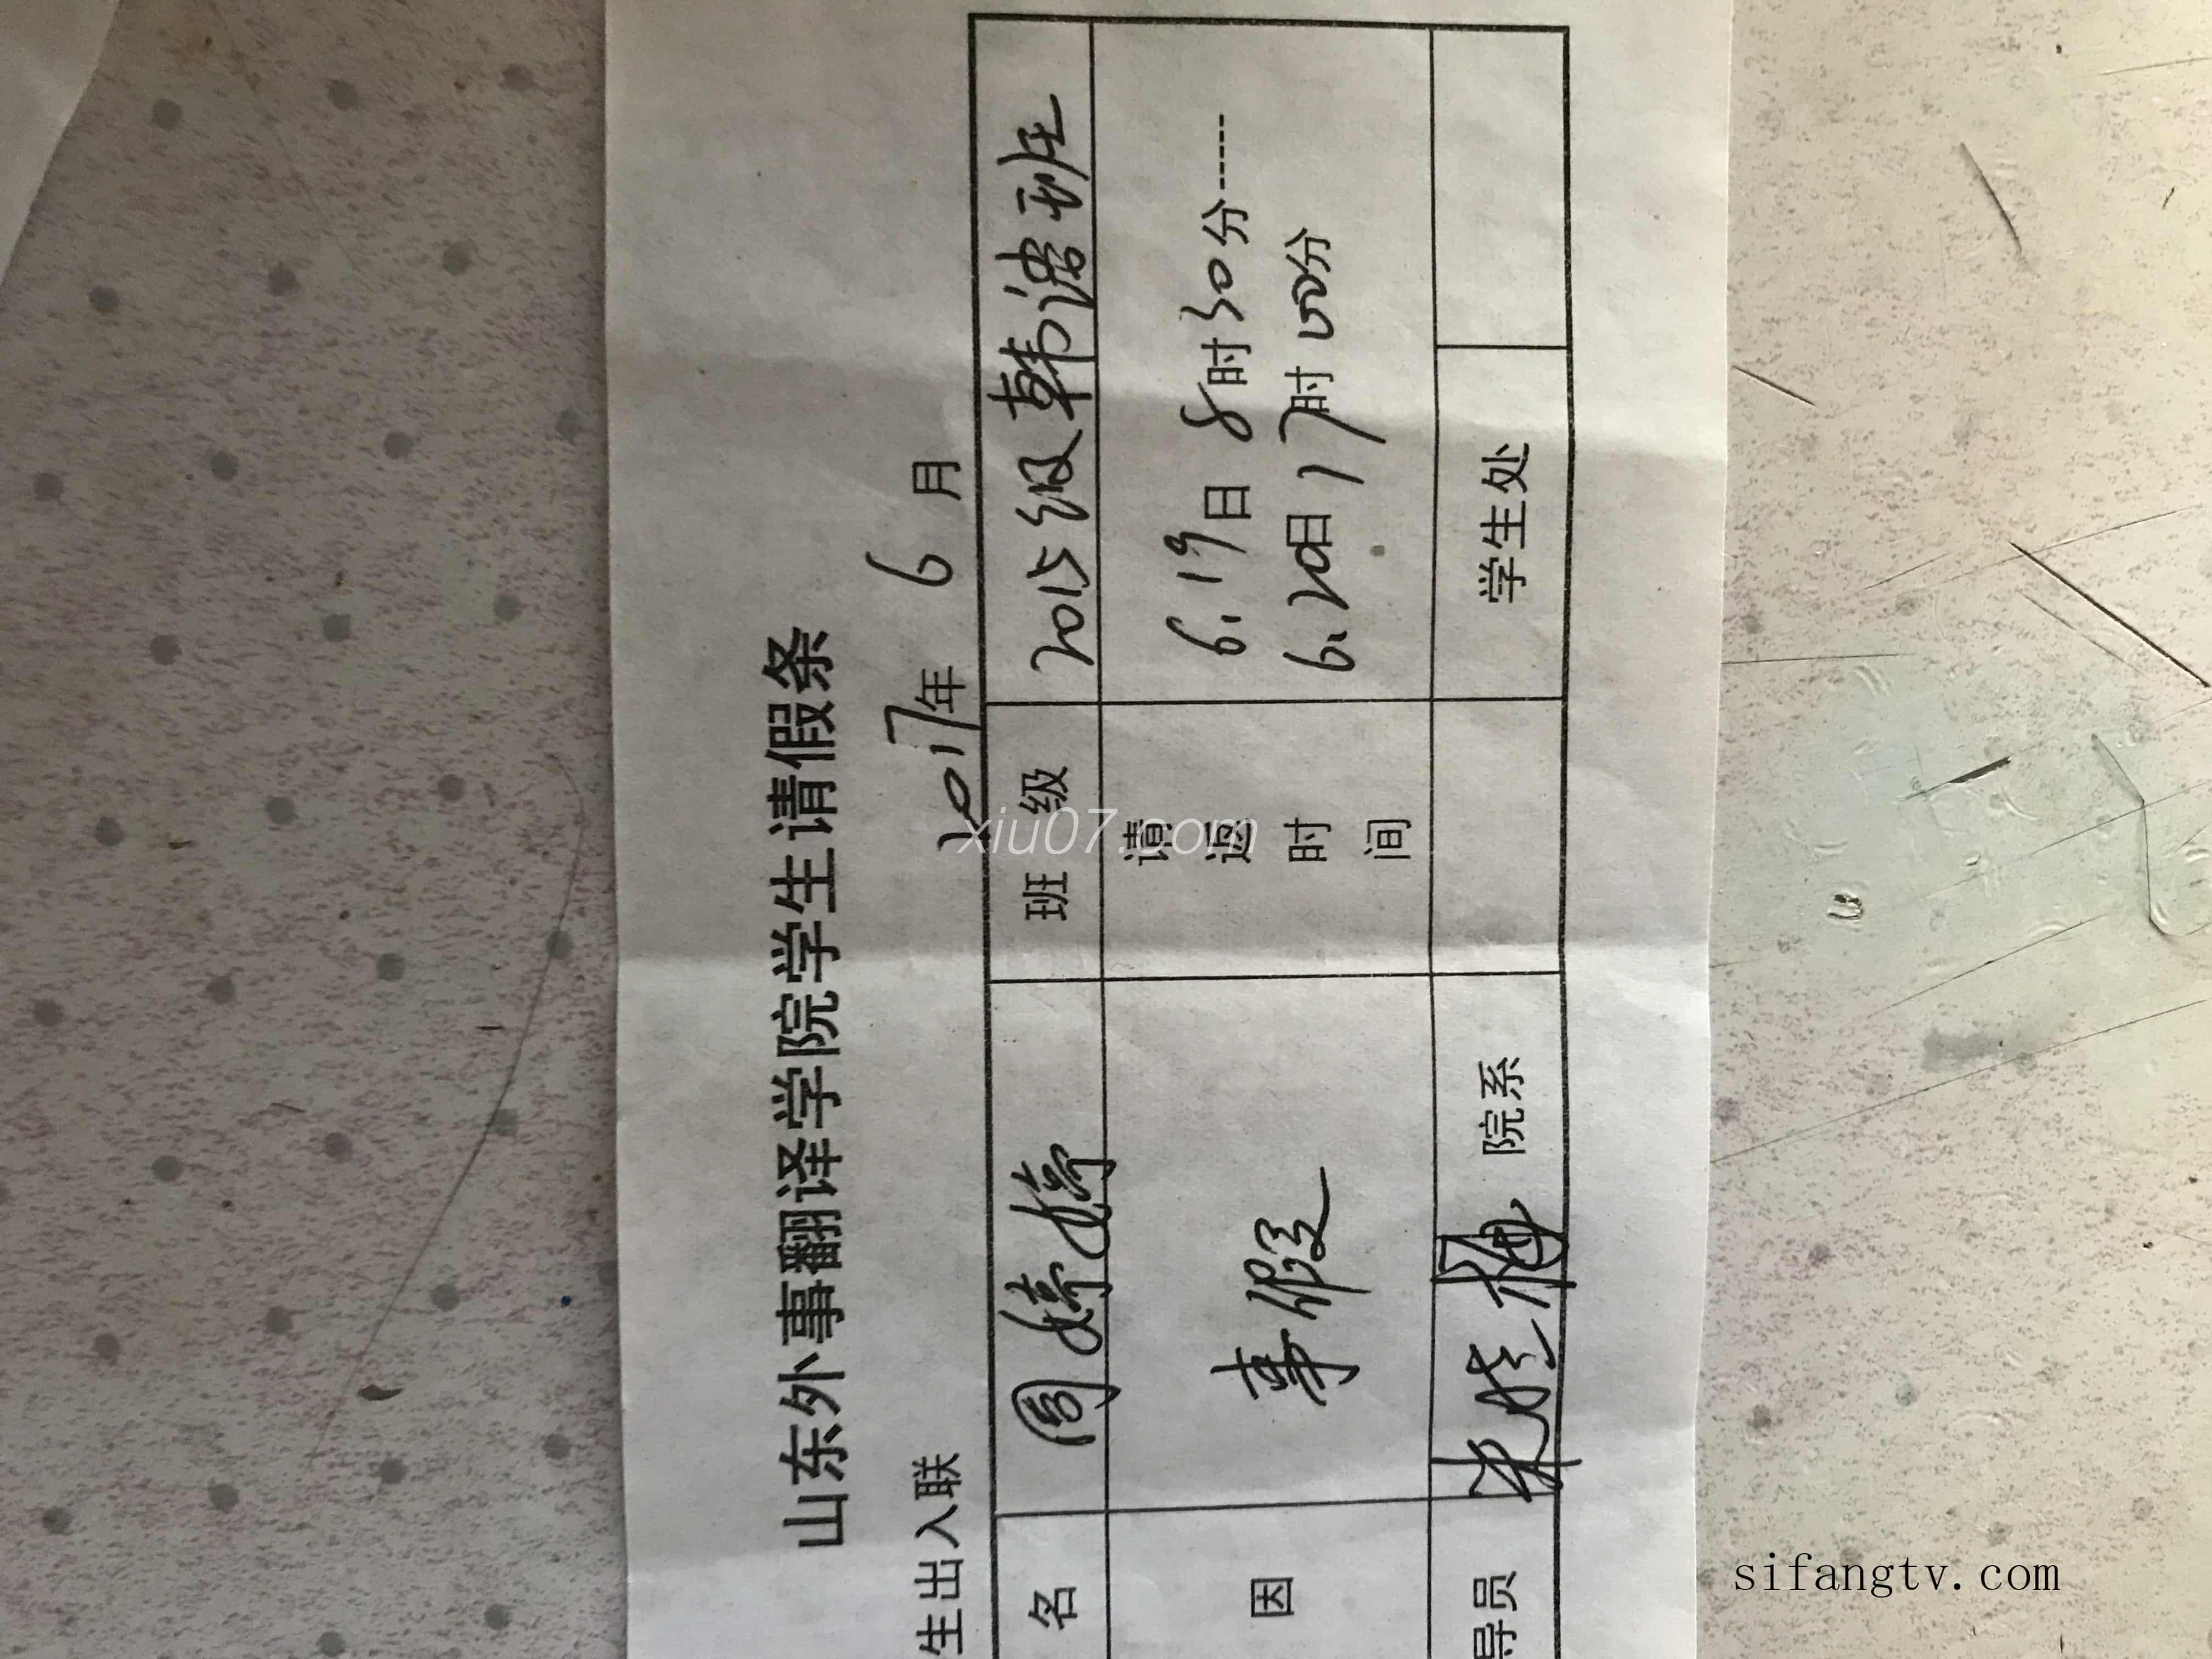 山东外事翻译学院学生请假条
生出入联 2017年 6 月
名 周婷婷 班 级 2015级韩语班
因 事假 请返时间 6.19日 8时30分-----
6.20日17时00分
导员 院系 学生处
xiu07.com
sifangtv.com